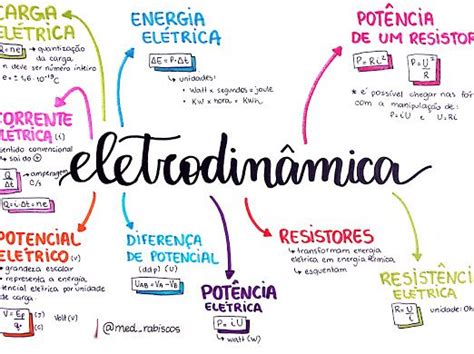 CARGA
ELÉTRICA
Q=ne → quantização
da carga.
n deve ser número inteiro
e = ± 1,6 · 10⁻¹⁹C
ENERGIA
ELÉTRICA
ΔE = P · Δt
→ unidades:
• Watt × segundos = joule
• KW × hora = KWh
POTÊNCIA
DE UM RESISTOR
P = Ri² P = U²/R
* é possível chegar nas
com a manipulação de:
P=iU e U=Ri
CORRENTE
ELÉTRICA (i)
sentido convencional
→ sai do +
Q/Δt → ampere
C/s
Q=i·Δt=ne
eletrodinâmica
POTENCIAL
ELÉTRICO (V)
• grandeza escalar
• representa a energia
potencial elétrica por unidade
de carga.
V = Ep/q Volt (V)
DIFERENÇA
DE POTENCIAL
(ddp) (V)
UAB = VA - VB
@med_rabiscos
POTÊNCIA
ELÉTRICA
P = iU
→ watt (W)
RESISTORES
→ transformam energia
elétrica em energia térmica
→ esquentam
RESISTÊNCIA
ELÉTRICA
R = U/i unidade: